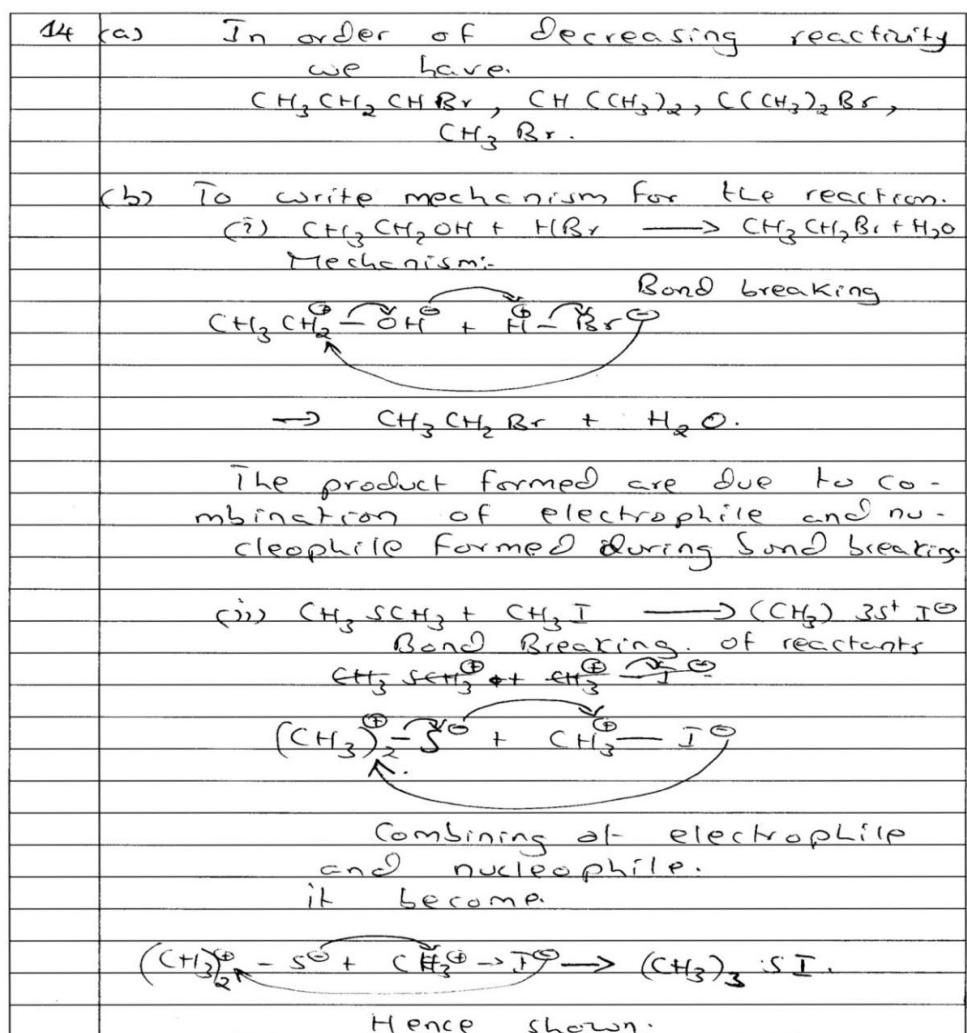 14 (a) In order of decreasing reactivity
we have.
CH₃CH₂CHBr, CH(CH₃)₂, C(CH₃)₂Br,
CH₃Br.
(b) To write mechanism for the reaction.
(i) CH₃CH₂OH + HBr ⟶ CH₃CH₂Br + H₂O
Mechanism:-
Bond breaking
CH₃CH₂⊕ — OH⊖ + H⊕ — Br⊖
→ CH₃CH₂Br + H₂O.
The product formed are due to co-
mbination of electrophile and nu-
cleophile formed during bond breaking
(ii) CH₃SCH₃ + CH₃I ⟶ (CH₃)3S⁺ I⊖
Bond Breaking. of reactants
CH₃ SCH₃⊕ + CH₃⊕ — I⊖
(CH₃)₂⊕ — S⊖ + CH₃⊕ — I⊖
Combining of electrophile
and nucleophile.
it become.
(CH₃)₂⊕ - S⊖ + CH₃⊕ → I⊖ → (CH₃)₃ SI.
Hence shown.